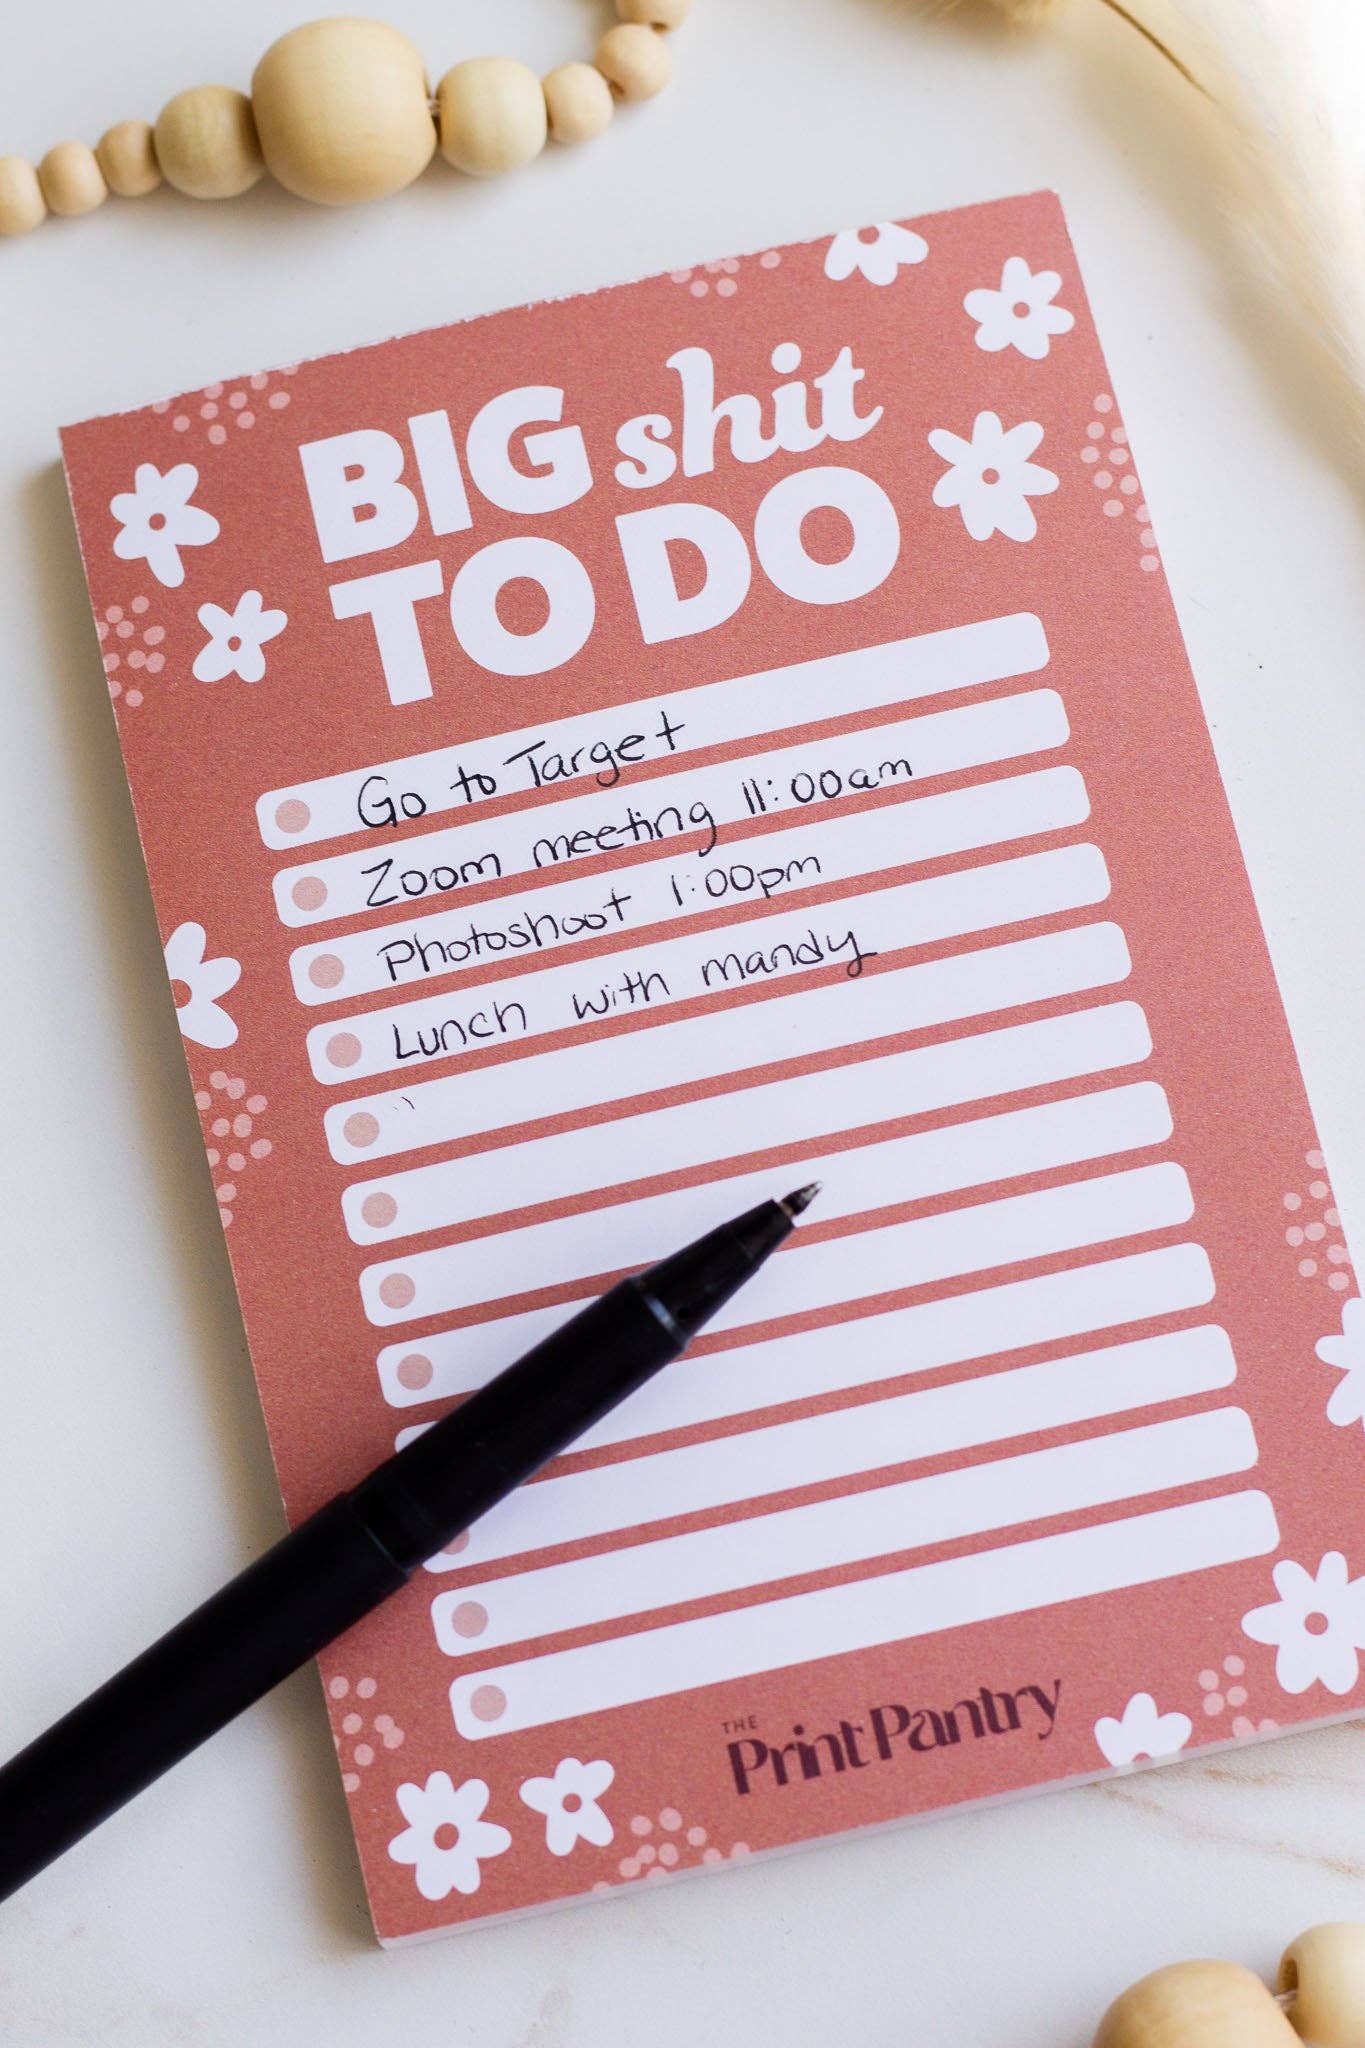 BIG shit
TO DO
Go to Target
Zoom meeting 11:00am
Photoshoot 1:00pm
Lunch with mandy
THE
Print Pantry